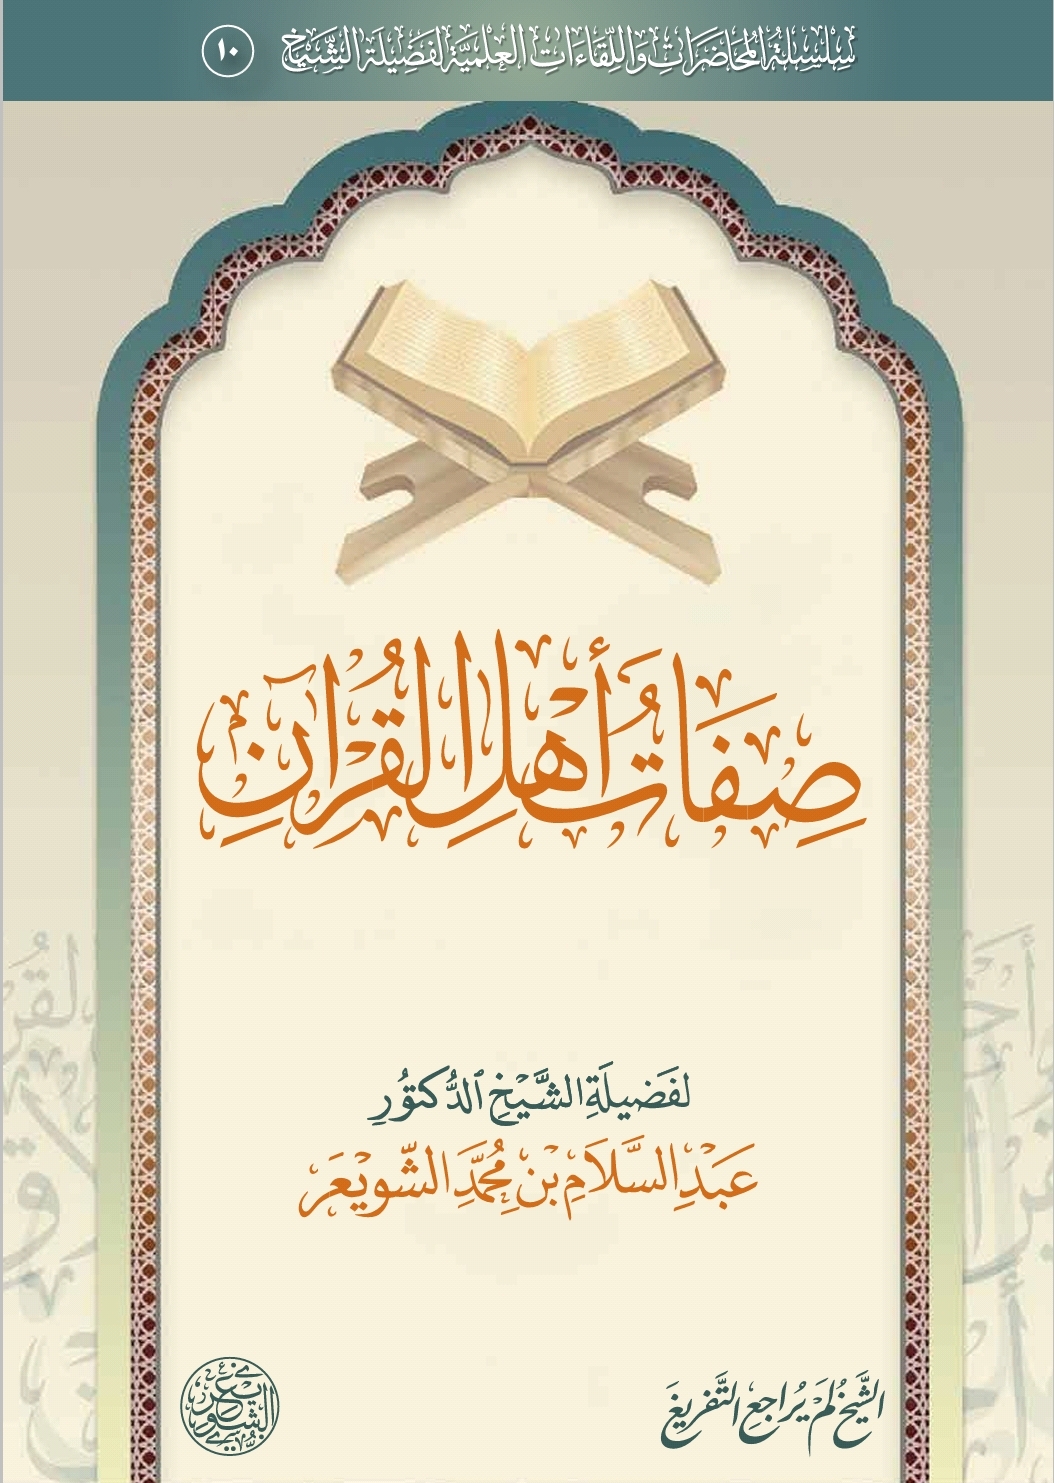 سِلْسِلَةُ المُحَاضَرَاتِ وَاللِّقَاءَاتِ العِلْمِيَّةِ لِفَضِيلَةِ الشَّيْخِ ١٠
صِفَاتُ أَهْلِ القُرْآنِ
لفَضِيلَةِ الشَّيْخِ الدُّكتُورِ
عَبْدِ السَّلَامِ بْنِ مُحَمَّدٍ الشُّوَيْعَرِ
الشَّيْخُ لَمْ يُرَاجِعِ التَّفْرِيغَ
الشويعر